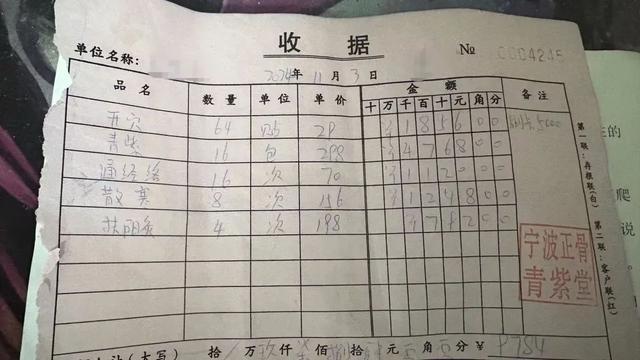 收据
单位名称: № 0004245
2024年11月3日
品名 数量 单位 单价 金额 备注
十万千百十元角分
开穴 64 贴 29 ¥185600
青柴 16 包 298 ¥476800
通经络 16 次 70 ¥112000
散寒 8 次 156 ¥124800
扶阳灸 4 次 198 ¥78200
第一联:存根联(白) 第二联:客户联(红)
宁波正骨
青紫堂
(大写) 拾 万玖仟柒佰捌拾 元 角 分 ¥9784
的
爬
说